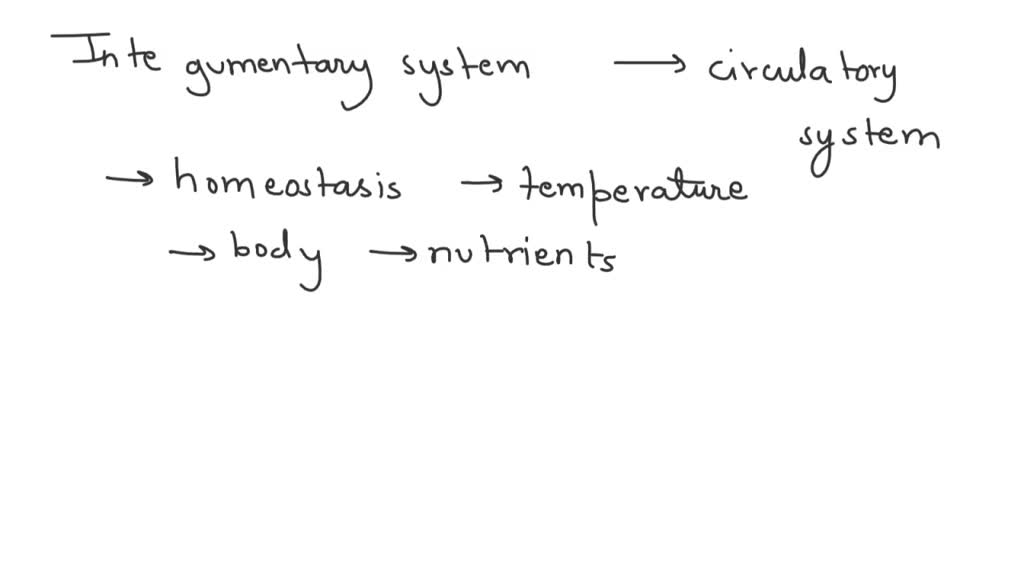 Integumentary system → circulatory
system
→ homeostasis → temperature
→ body → nutrients